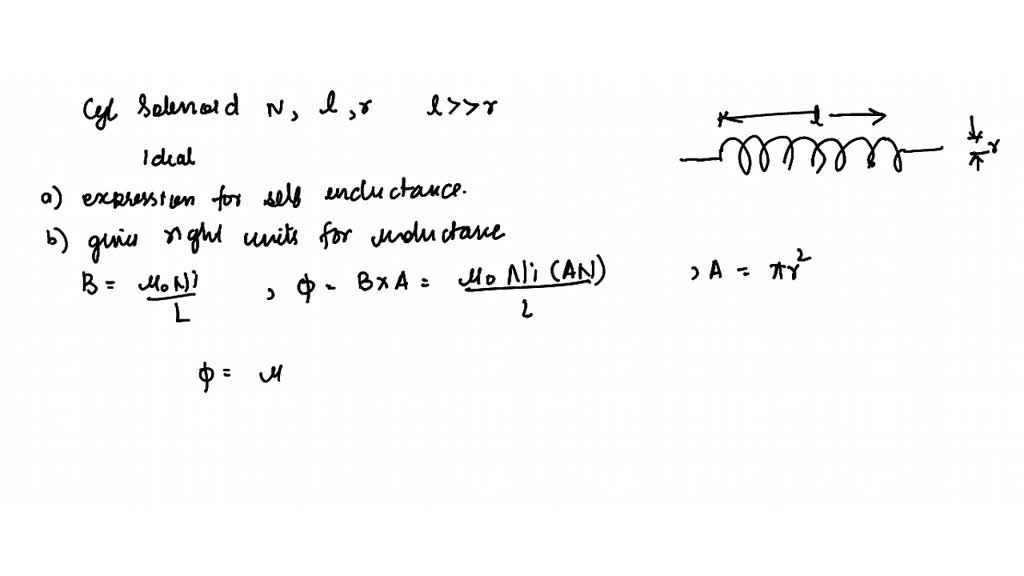 Cyl Solenoid N, l, r l >> r
l
r
Ideal
a) expression for self inductance.
b) gives right units for inductance
B = μ₀Ni/L , ϕ = B×A = μ₀Ni(AN)/l , A = πr²
ϕ = μ